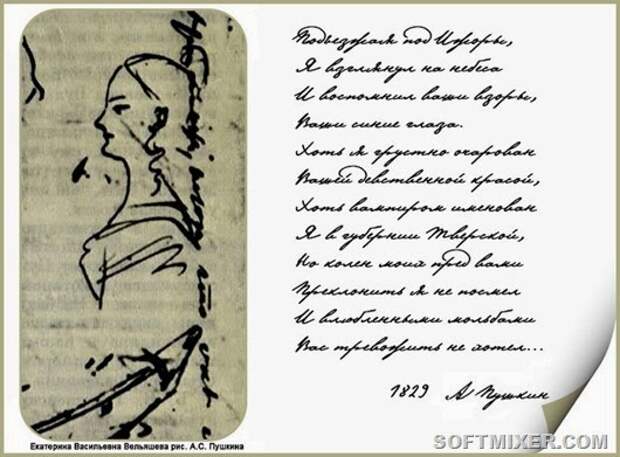 Подъезжая под Ижоры,
Я взглянул на небеса
И воспомнил ваши взоры,
Ваши синие глаза.
Хоть я грустно очарован
Вашей девственной красой,
Хоть вампиром именован
Я в губернии Тверской,
Но колен моих пред вами
Преклонить я не посмел
И влюбленными мольбами
Вас тревожить не хотел...
1829 А Пушкин
Екатерина Васильевна Вельяшева рис. А.С. Пушкина
SOFTMIXER.COM